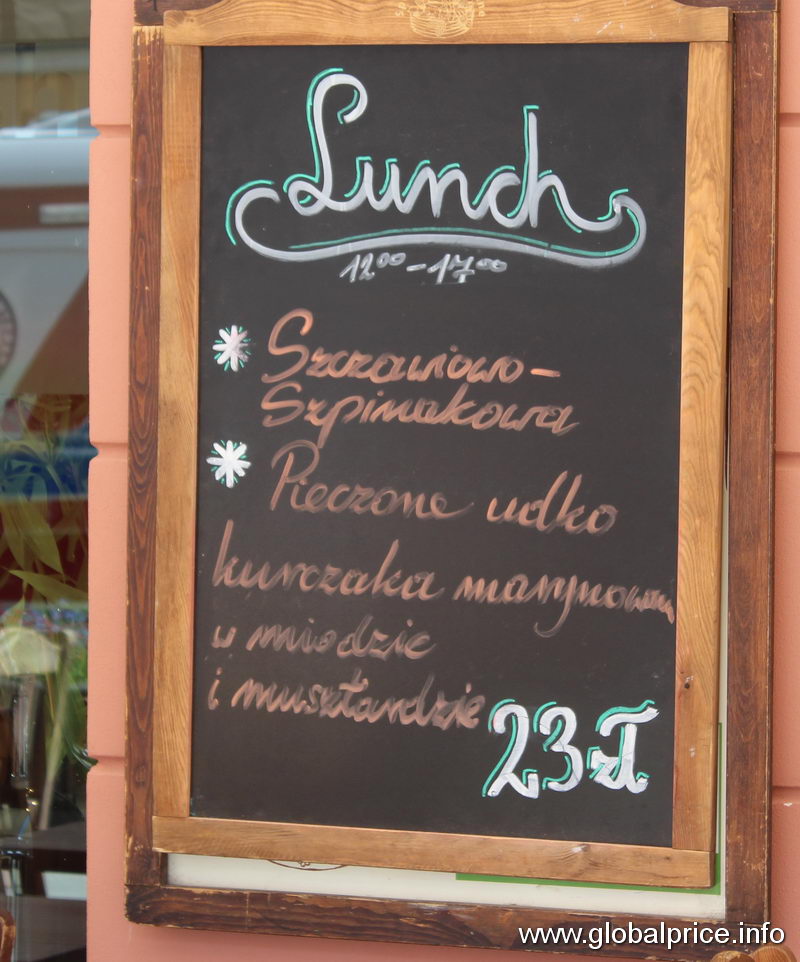 Lunch
12⁰⁰-17⁰⁰
* Szczawiowo-
Szpinakowa
* Pieczone udko
kurczaka marynowane
w miodzie
i musztardzie
23zł
www.globalprice.info